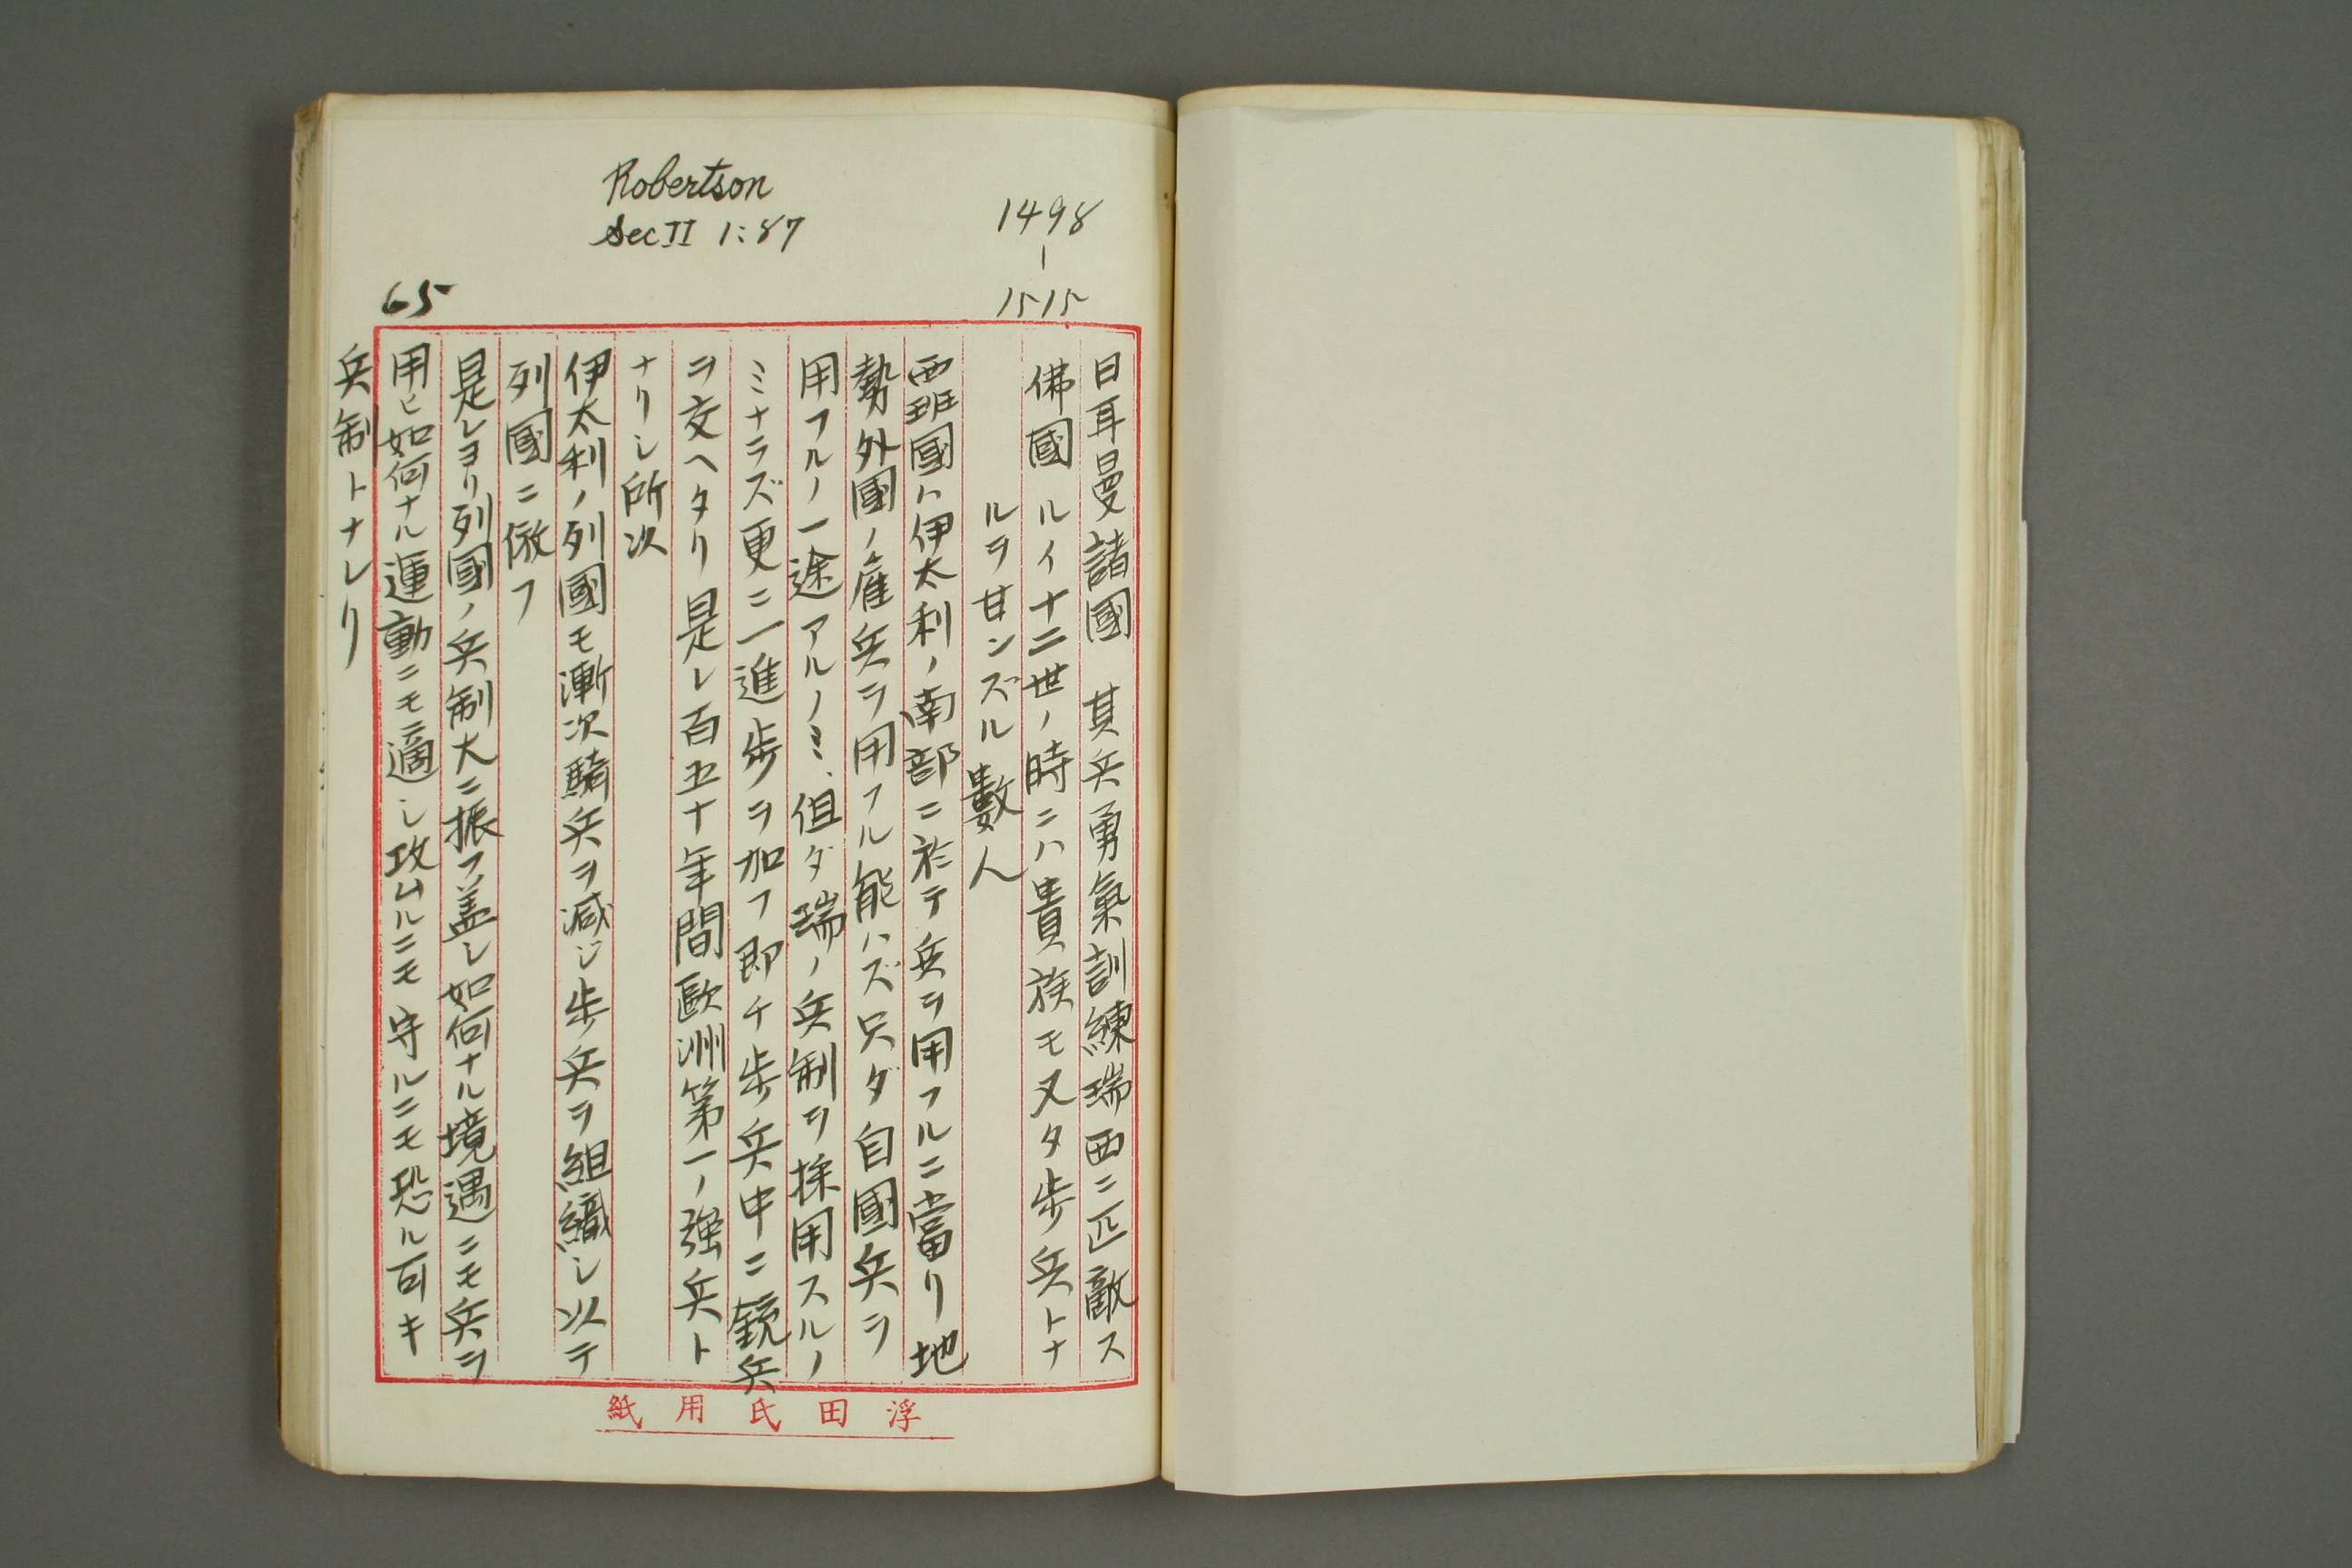 Robertson
Sec II 1:87
1498
|
1515
65
日耳曼諸國 其兵勇氣訓練瑞西ニ匹敵ス
佛國 ルイ十二世ノ時ニハ貴族モ又タ歩兵トナ
ルヲ甘ンズル數人
西班國ハ伊太利ノ南部ニ於テ兵ヲ用フルニ當リ地
勢外國ノ雇兵ヲ用フル能ハズ只ダ自國兵ヲ
用フルノ一途アルノミ、但ダ瑞ノ兵制ヲ採用スルノ
ミナラズ更ニ一進歩ヲ加フ即チ歩兵中ニ銃兵
ヲ交ヘタリ是レ百五十年間歐洲第一ノ強兵ト
ナリシ所次
伊太利ノ列國モ漸次騎兵ヲ減ジ歩兵ヲ組織シ以テ
列國ニ倣フ
是レヨリ列國ノ兵制大ニ振フ蓋シ如何ナル境遇ニモ兵ヲ
用ヒ如何ナル運動ニモ適シ攻ムルニモ守ルニモ恐ル可キ
兵制トナレリ
浮田氏用紙